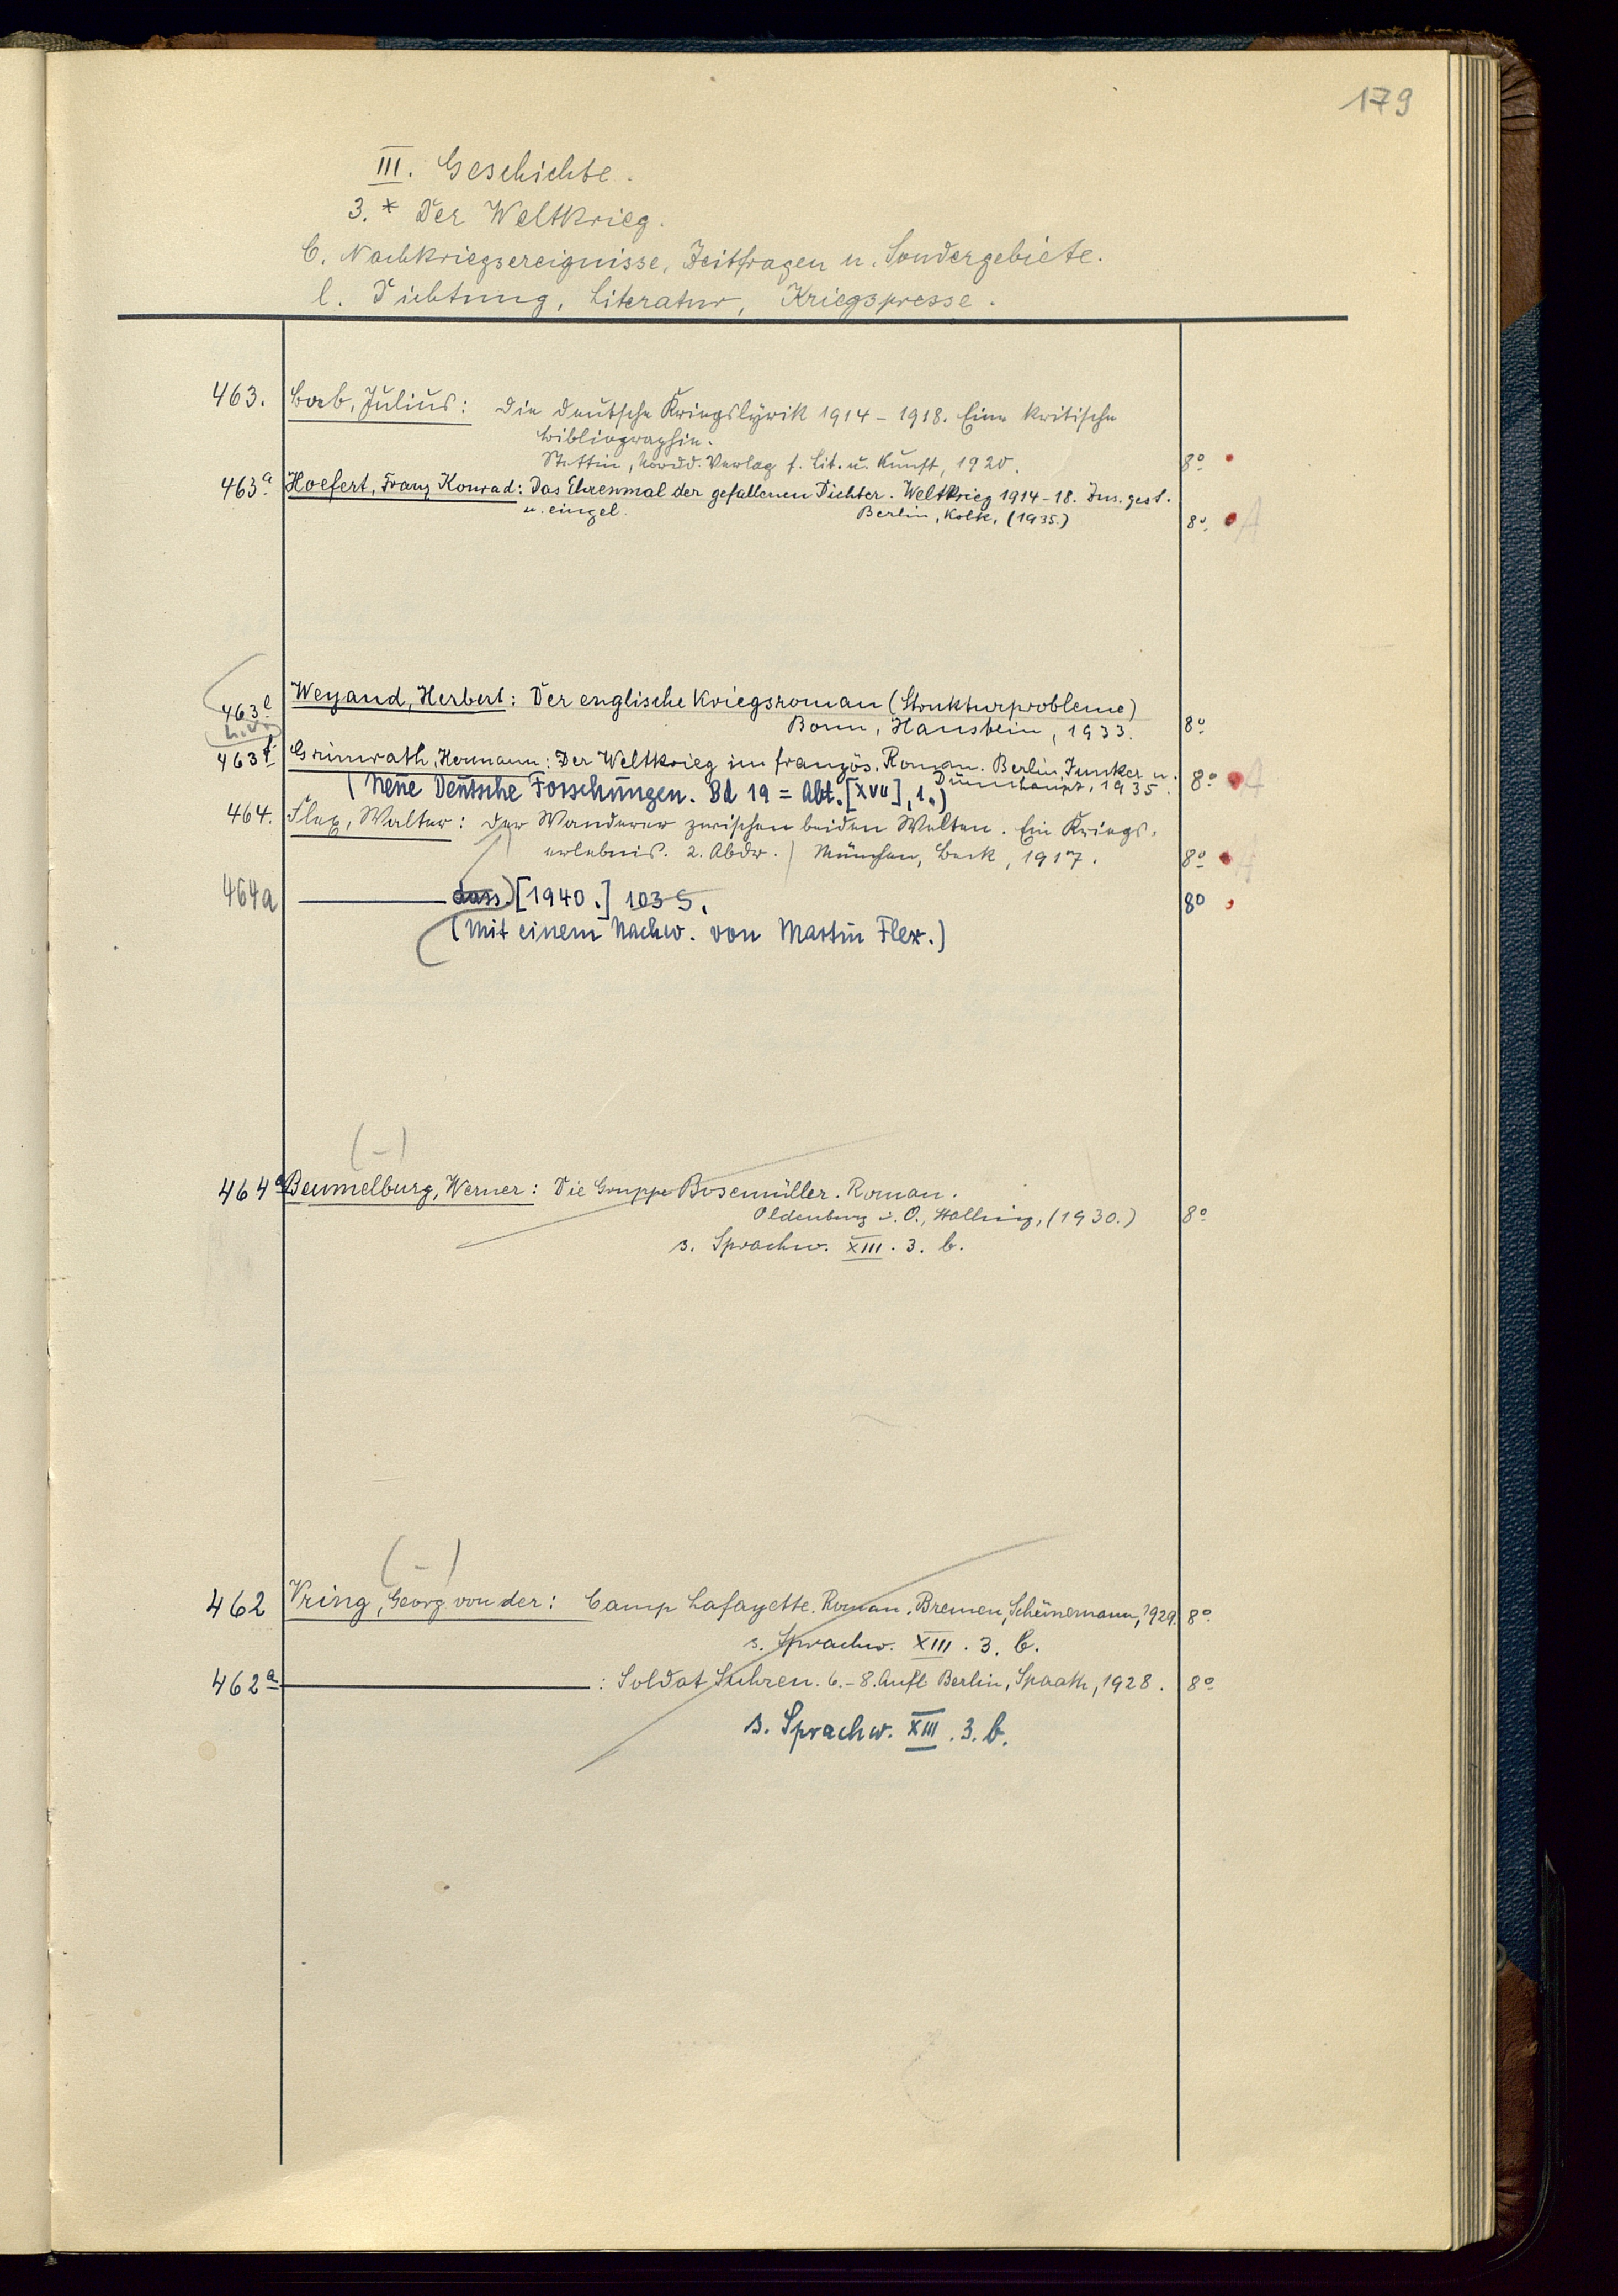 179
III. Geschichte.
3.* Der Weltkrieg.
C. Nachkriegsereignisse, Zeitfragen u. Sondergebiete.
l. Dichtung, Literatur, Kriegspresse.
463. Bab, Julius: Die deutsche Kriegslyrik 1914-1918. Eine kritische
Bibliographie.
Stettin, Nordd. Verlag f. Lit. u. Kunst, 1920. 8º
463a Hoefert, Franz Konrad: Das Ehrenmal der gefallenen Dichter. Weltkrieg 1914-18. Zus. gest.
u. eingel. Berlin, Kolk, (1935.) 8º A
463e Weyand, Herbert: Der englische Kriegsroman (Strukturprobleme)
Bonn, Hanstein, 1933. 8º
463f Grimrath, Hermann: Der Weltkrieg im französ. Roman. Berlin, Junker u.
Dünnhaupt, 1935. 8º A
(Neue Deutsche Forschungen. Bd 19 = Abt. [XVII], 1.)
464. Flex, Walter: Der Wanderer zwischen beiden Welten. Ein Kriegs-
erlebnis. 2. Abdr. München, Beck, 1917. 8º A
464a ——— dass. [1940.] 103 S. 8º
(Mit einem Nachw. von Martin Flex.)
(-)
464a Beumelburg, Werner: Die Gruppe Bosemüller. Roman.
Oldenburg i. O., Stalling, (1930.) 8º
s. Sprachw. XIII. 3. b.
(-)
462 Vring, Georg von der: Camp Lafayette. Roman. Bremen, Schünemann, 1929. 8º
s. Sprachw. XIII. 3. b.
462a ———: Soldat Suhren. 6.-8. Aufl Berlin, Spaeth, 1928. 8º
s. Sprachw. XIII. 3. b.